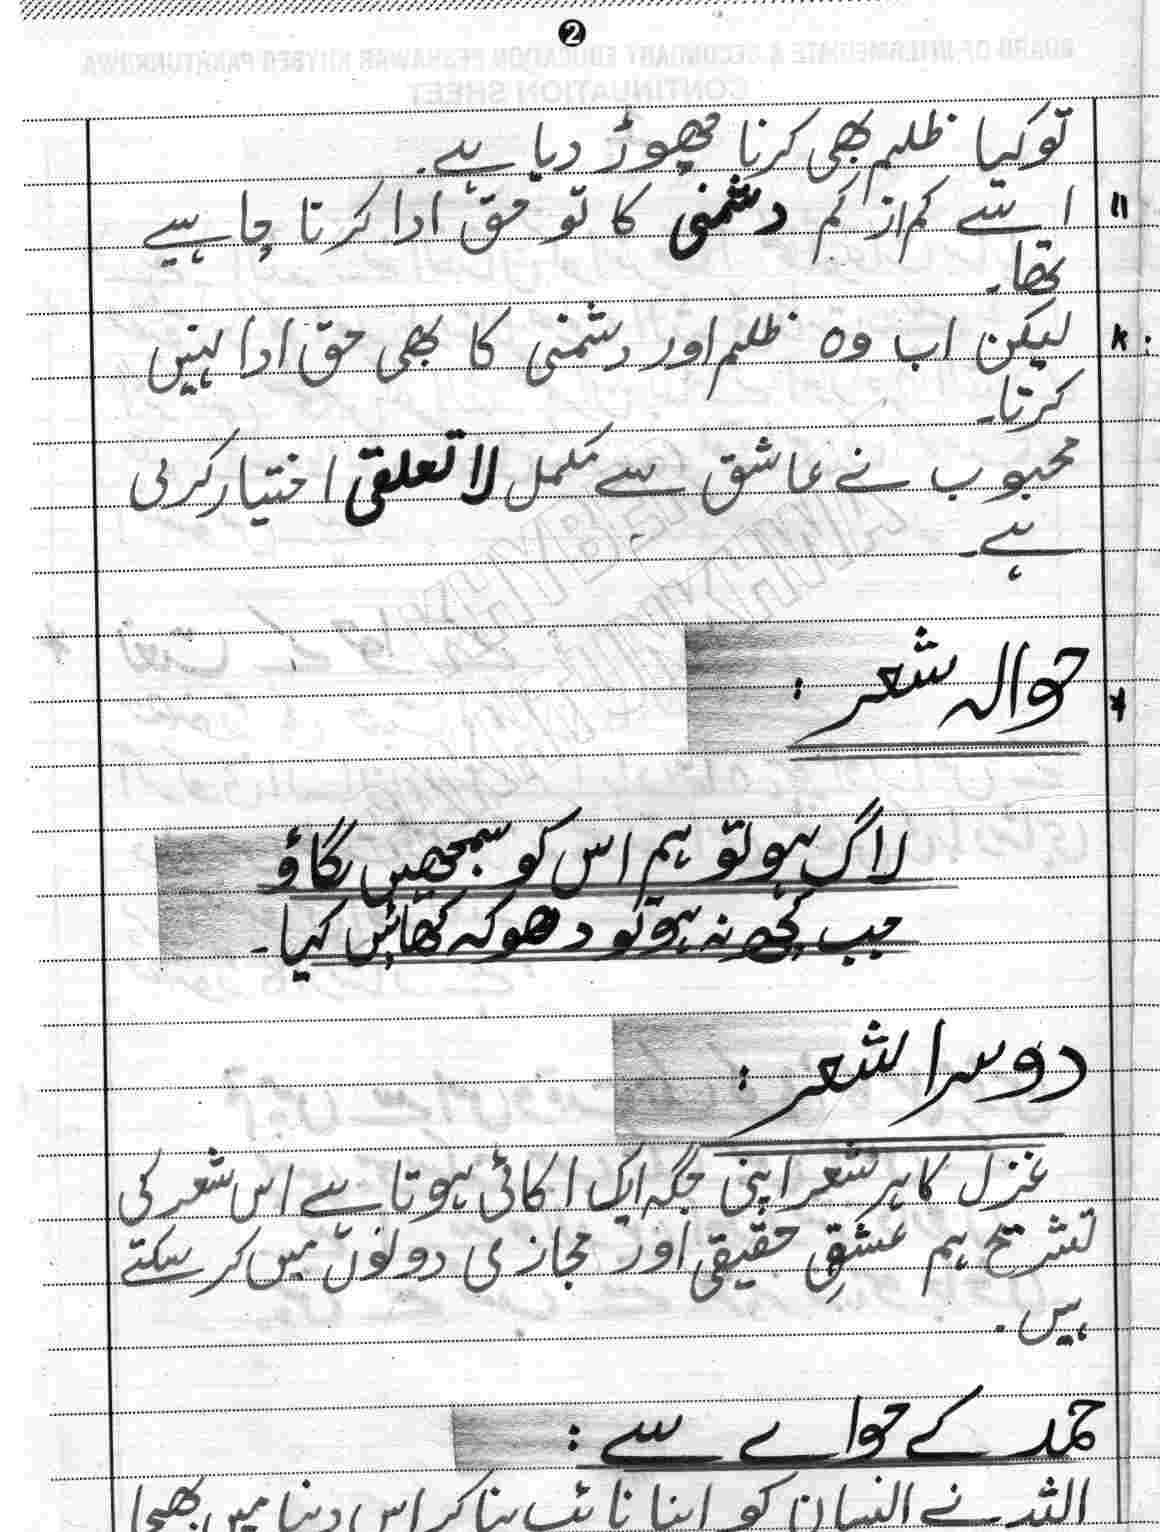 ❷
تو کیا ظلم بھی کرنا چھوڑ دیا ہے۔
اسے کم از کم دشمنی کا تو حق ادا کرنا چاہیے
تھا۔
لیکن اب وہ ظلم اور دشمنی کا بھی حق ادا نہیں
کرتا۔
محبوب نے عاشق سے مکمل لاتعلقی اختیار کرلی
ہے۔
حوالہ شعر :
لاگ ہو تو ہم اس کو سمجھیں لگاؤ
جب کچھ نہ ہو تو دھوکہ کھائیں کیا۔
دوسرا شعر :
غزل کا ہر شعر اپنی جگہ ایک اکائی ہوتا ہے اس شعر کی
تشریح ہم عشقِ حقیقی اور مجازی دونوں میں کر سکتے
ہیں۔
حمد کے حوالے سے :
اللہ نے انسان کو اپنا نائب بنا کر اس دنیا میں بھیجا